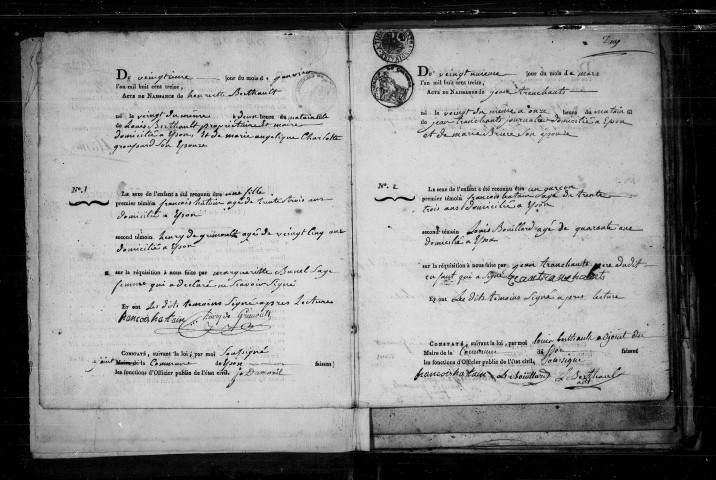 Du vingtième jour du mois de janvier
l'an mil huit cent treize,
Acte de Naissance de henriette Berthault
né le vingt du même à deux heure du
de Louis Berthault propriétaire et maire
domicilié à yson, et de marie angelique Charlotte
son Epouse
N°. 1
Le sexe de l'enfant a été reconnu être une fille
premier témoin françois hatain agé de trente trois ans
domicilié à yson
second témoin henry de Grimoult agé de vingt cinq ans
domicilié à yson
sur la réquisition à nous faite par margueritte Burel Sage
femme qui a déclaré ne scavoir Signé
Et ont les dits temoins Signé apres Lecture
francois hatain henry de Grimoult
Constaté, suivant la loi, par moi Soussigné
adjoint
Maire de la Commune de yson faisant
les fonctions d'Officier public de l'état civil,
Du vingt jour du mois de mars
l'an mil huit cent treize,
Acte de Naissance de jean tranchants
né le vingt du même à onze heure du matin
de jean tranchants journalier domicilié a yson
et de marie son épouse
N°. 2
Le sexe de l'enfant a été reconnu être un garçon
premier témoin francois hatain agé de trente
trois ans domicilié a yson
second témoin Louis Bouillard agé de quarante ans
domicilié a yson
sur la réquisition à nous faite par jean tranchants pere du dit
enfant qui a signé
Et ont les dits temoins Signé après lecture
Constaté, suivant la loi, par moi louis berthault adjoint du
Maire de la Commune de yson faisant
les fonctions d'Officier public de l'état civil, Soussigné
francois hatain L Bouillard L Berthault